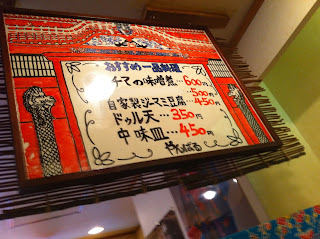 おすすめ一品料理
チーマの味噌煮…600円
500円
自家製ジーマミ豆腐…450円
ドゥル天…350円
中味皿…450円
やんばる